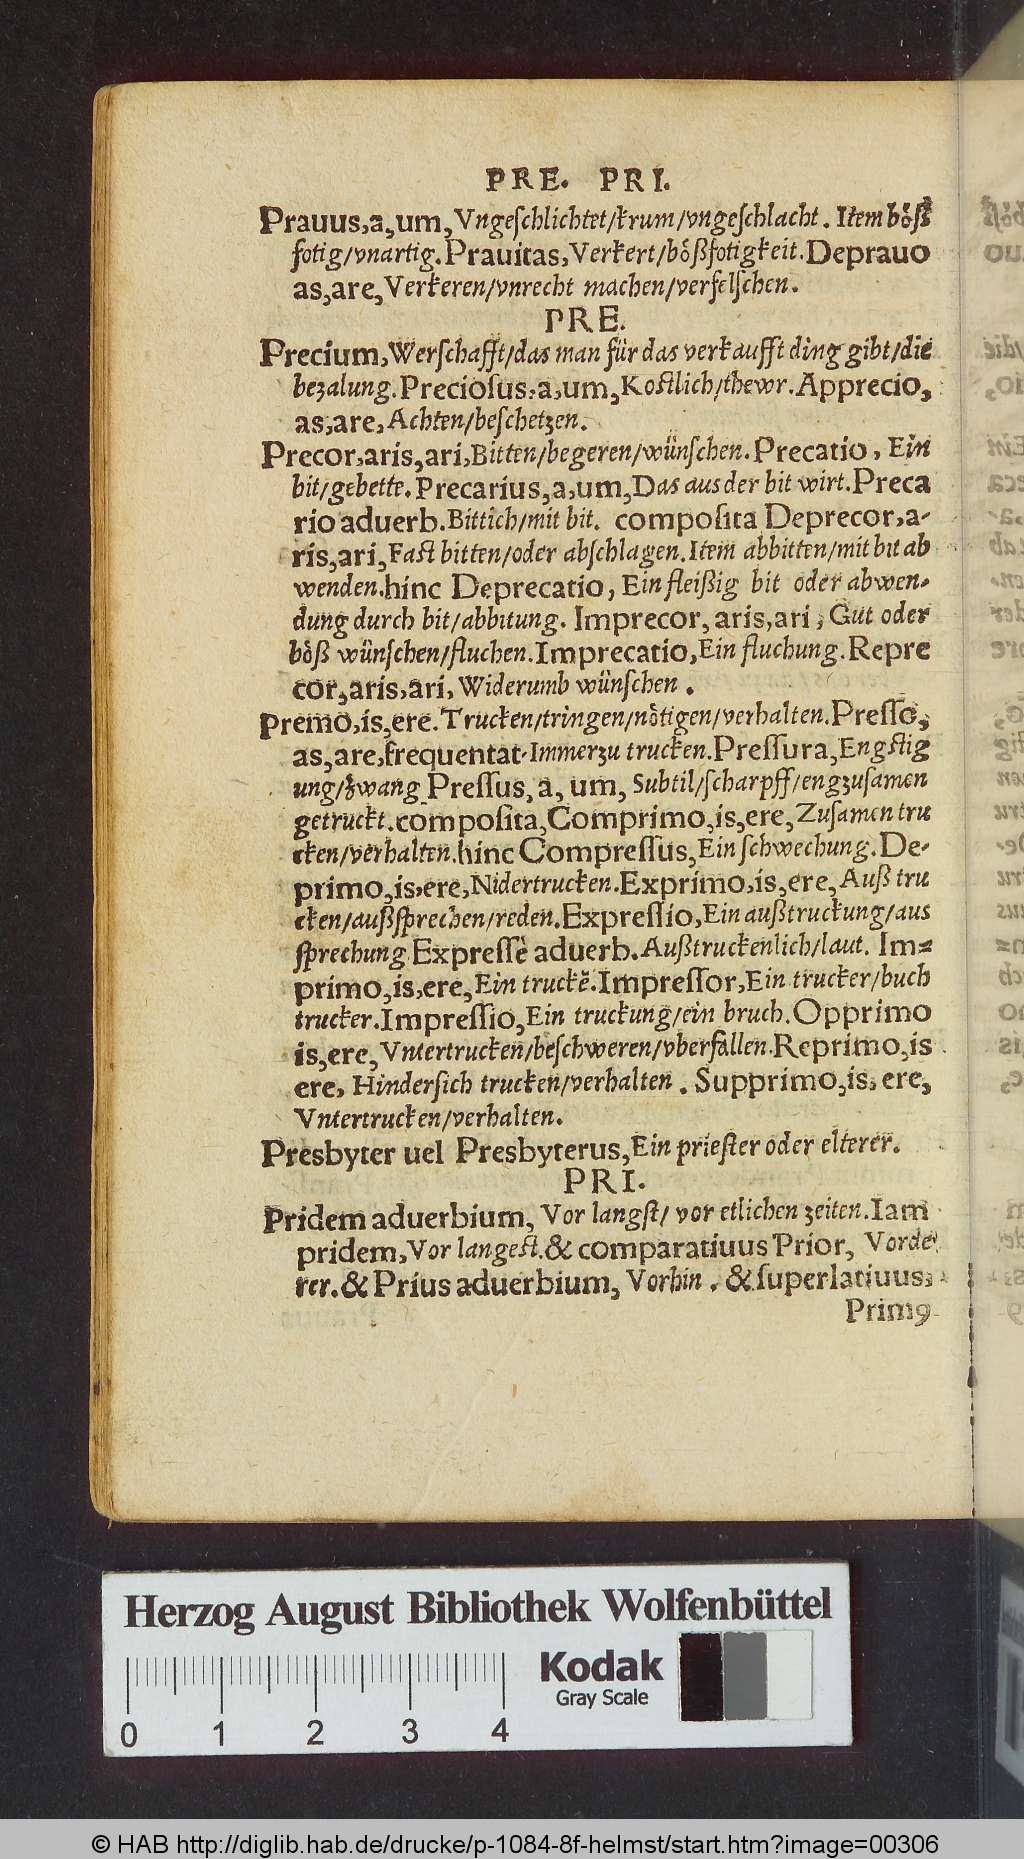 PRE. PRI.
Prauus,a,um, Vngeſchlichtet/krum/vngeſchlacht. Item böß
fotig/vnartig. Prauitas, Verkert/bößfotigkeit. Deprauo
as,are, Verkeren/vnrecht machen/verfelſchen.
PRE.
Precium, Werſchafft/das man für das verkaufft ding gibt/die
bezalung. Precioſus,a,um, Koſtlich/thewr. Apprecio,
as,are, Achten/beſchetzen.
Precor,aris,ari, Bitten/begeren/wünſchen. Precatio, Ein
bit/gebette. Precarius,a,um, Das aus der bit wirt. Preca
rio aduerb. Bittich/mit bit. compoſita Deprecor,a-
ris,ari, Faſt bitten/oder abſchlagen. Item abbitten/mit bit ab
wenden. hinc Deprecatio, Ein fleißig bit oder abwen-
dung durch bit/abbitung. Imprecor, aris,ari, Gut oder
böß wünſchen/fluchen. Imprecatio, Ein fluchung. Repre
cor,aris,ari, Widerumb wünſchen.
Premo,is,ere. Trucken/tringen/nötigen/verhalten. Preſſo,
as,are, frequentat. Immerzu trucken. Preſſura, Engſtig
ung/zwang Preſſus, a, um, Subtil/ſcharpff/engzuſamen
getruckt. compoſita, Comprimo,is,ere, Zuſamen tru
cken/verhalten. hinc Compreſſus, Ein ſchwechung. De-
primo,is,ere, Nidertrucken. Exprimo,is,ere, Auß tru
cken/außſprechen/reden. Expreſſio, Ein außtruckung/aus
ſprechung Expreſſè aduerb. Außtruckenlich/laut. Im=
primo,is,ere, Ein truckē. Impreſſor, Ein trucker/buch
trucker. Impreſſio, Ein truckung/ein bruch. Opprimo
is,ere, Vntertrucken/beſchweren/vberfallen. Reprimo,is
ere, Hinderſich trucken/verhalten. Supprimo,is,ere,
Vntertrucken/verhalten.
Presbyter uel Presbyterus, Ein prieſter oder elterer.
PRI.
Pridem aduerbium, Vor langſt/ vor etlichen zeiten. Iam
pridem, Vor langeſt. & comparatiuus Prior, Vorde
rer. & Prius aduerbium, Vorhin. & ſuperlatiuus,
Primꝰ
Herzog August Bibliothek Wolfenbüttel
Kodak
Gray Scale
0 1 2 3 4
© HAB http://diglib.hab.de/drucke/p-1084-8f-helmst/start.htm?image=00306